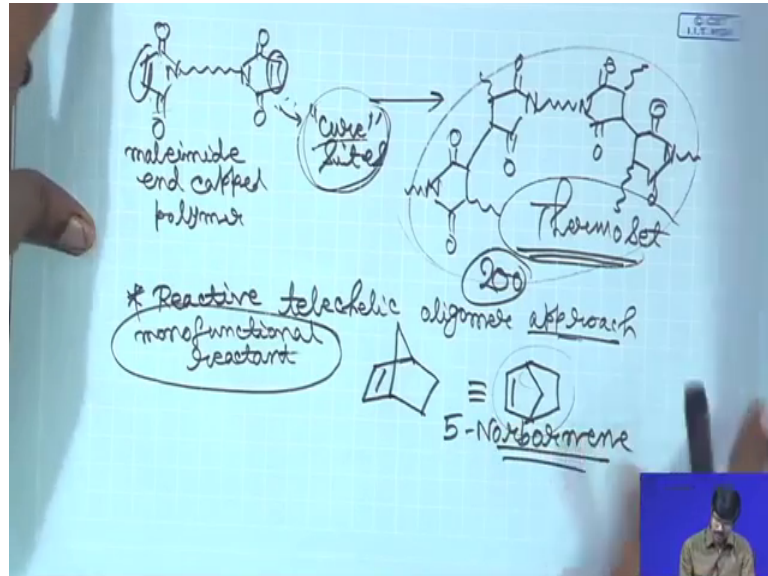 © CET
I.I.T. KGP
O
O
N
N
O
O
maleimide
end capped
polymer
"cure"
sites
O
N
N
O
O
O
O
O
N
O
N
O
O
Thermoset
200
* Reactive telechelic oligomer approach
monofunctional
reactant
≡
5-Norbornene